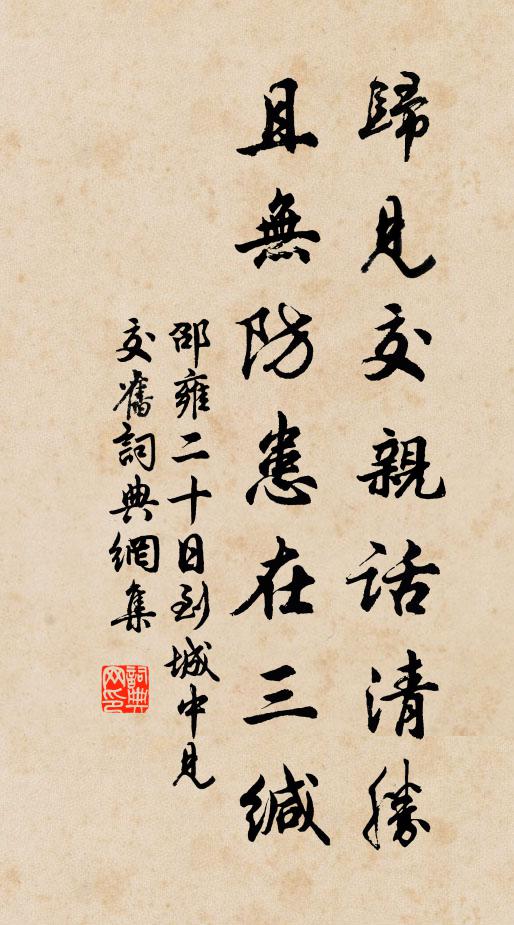 歸見交親話清勝
且無防患在三緘
邵雍二十日到城中見
交舊詞典網集
詞典网印